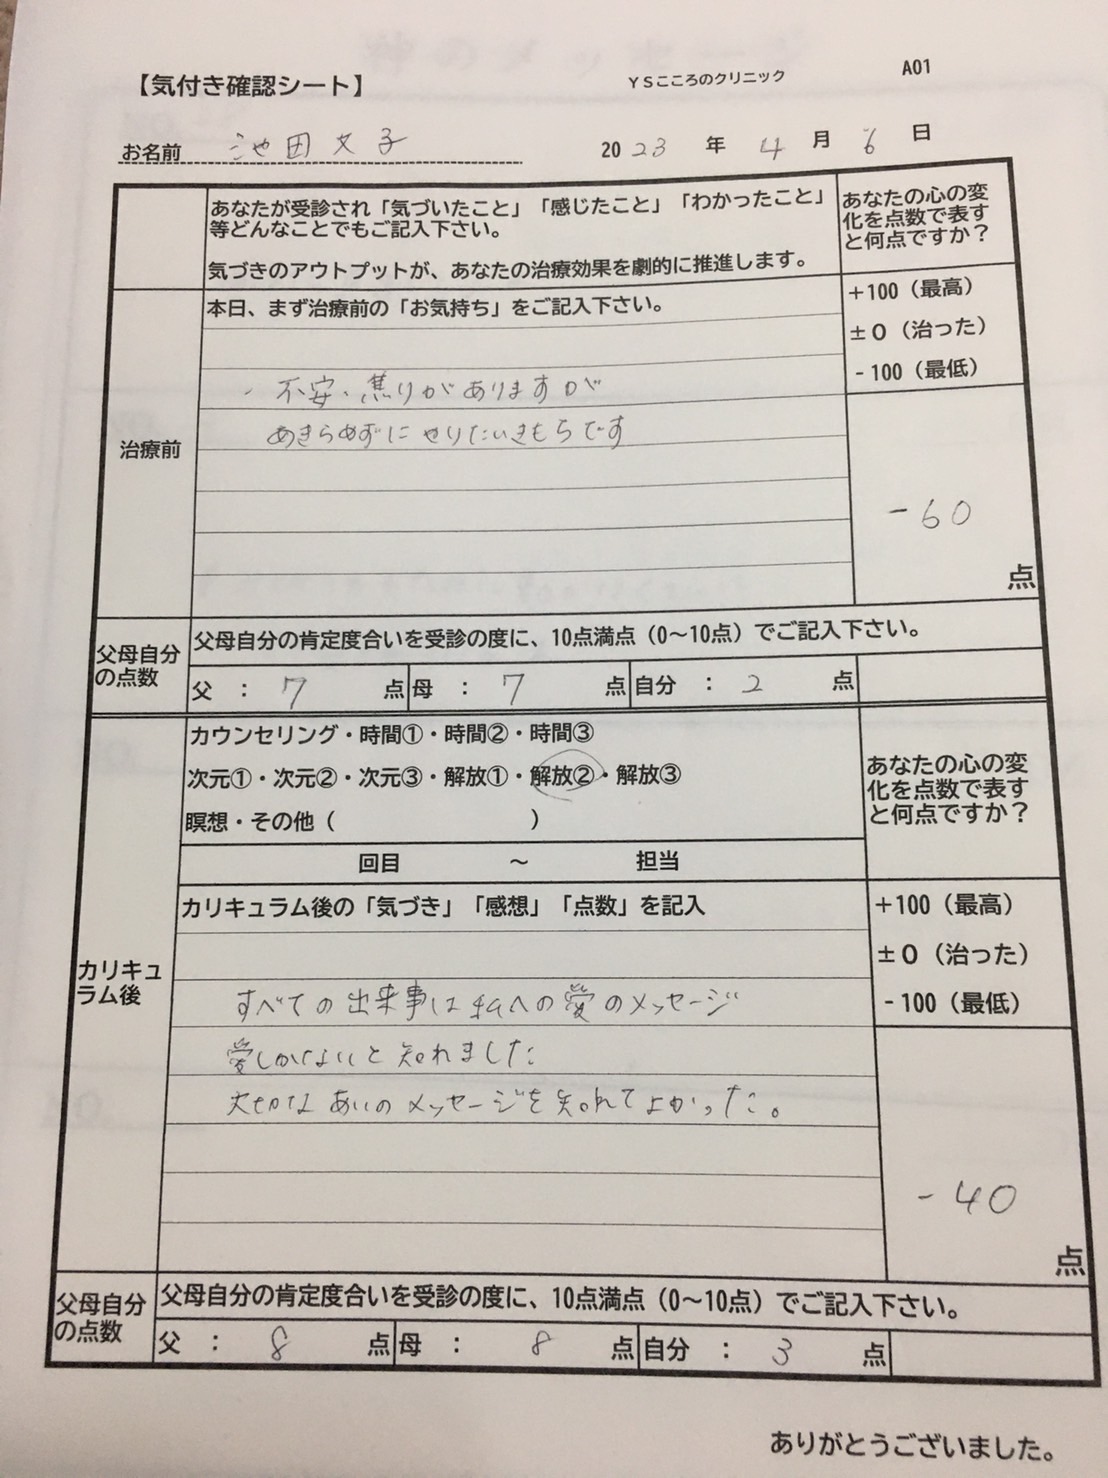 【気付き確認シート】
YSこころのクリニック
A01
お名前 池田文子
2023年4月6日
あなたが受診され「気づいたこと」「感じたこと」「わかったこと」
等どんなことでもご記入下さい。
気づきのアウトプットが、あなたの治療効果を劇的に推進します。
あなたの心の変
化を点数で表す
と何点ですか？
治療前
本日、まず治療前の「お気持ち」をご記入下さい。
+100（最高）
±0（治った）
-100（最低）
・不安・焦りがありますが
あきらめずにやりたいきもちです
-60
点
父母自分
の点数
父母自分の肯定度合いを受診の度に、10点満点（0～10点）でご記入下さい。
父 : 7 点 母 : 7 点 自分 : 2 点
カウンセリング・時間①・時間②・時間③
次元①・次元②・次元③・解放①・解放②・解放③
瞑想・その他（ ）
回目 ～ 担当
あなたの心の変
化を点数で表す
と何点ですか？
カリキュ
ラム後
カリキュラム後の「気づき」「感想」「点数」を記入
+100（最高）
±0（治った）
-100（最低）
すべての出来事は私への愛のメッセージ
愛しかないと知れました
大切なあいのメッセージを知れてよかった。
-40
点
父母自分
の点数
父母自分の肯定度合いを受診の度に、10点満点（0～10点）でご記入下さい。
父 : 8 点 母 : 8 点 自分 : 3 点
ありがとうございました。